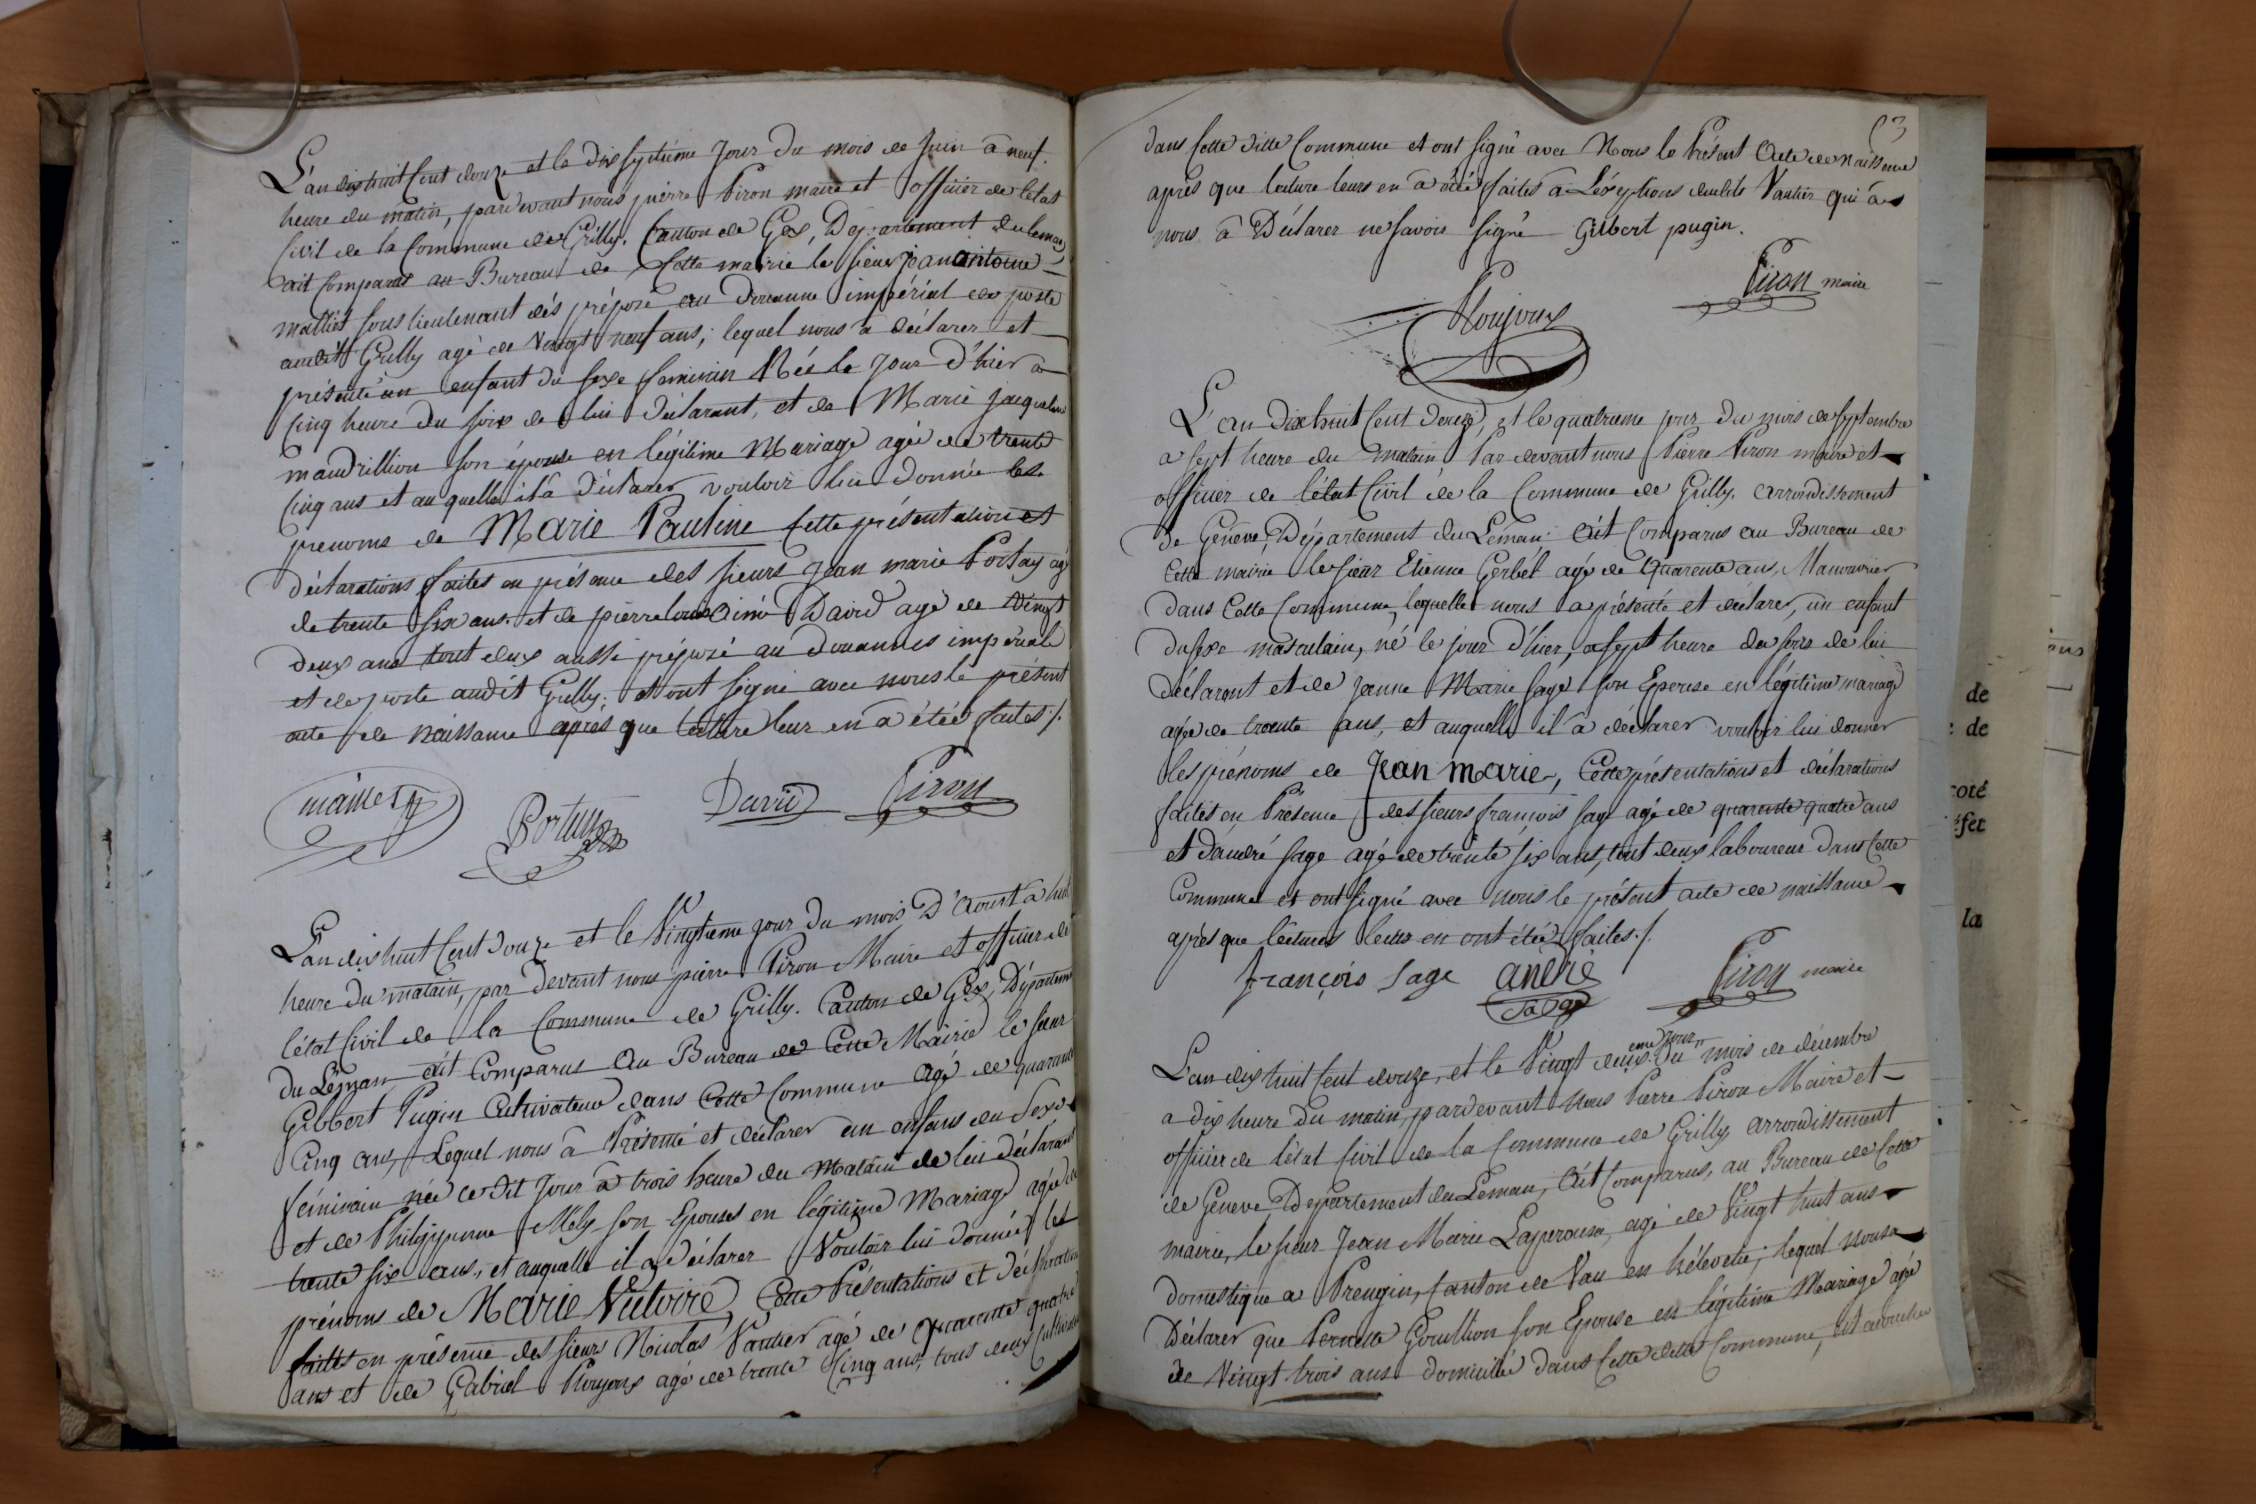 L'an dix huit Cent douze et le dix septieme Jour du mois de Juin à neuf
heure du matin, pardevant nous pierre Piron maire et officier de l'etat
Civil de la Commune de Grilly, Canton de Gex, Département du Leman
ait Comparus au Bureau de Cette mairie le sieur jean antoine
mallet sous lieutenant dés préposé au Douanne impérial de poste
audit Grilly agé de Vingt neuf ans; lequel nous a déclarer et
présenté un enfant du sexe feminin Née le Jour d'hier a
Cinq heure du soir de lui déclarant, et de Marie jacqueline
maudrillion son épouse en légitime Mariage agée de trente
Cinq ans et au quelle il à déclarer vouloir lui donnée les
prenoms de Marie Pauline Cette présentation et
déclarations faites en présence des sieurs Jean marie Portay agé
de trente six ans et de pierre louis aimé David agé de Vingt
deux ans tout deux aussi préposé au douannes impériale
et de poste audit Grilly; et ont signé avec nous le présent
acte de naissance après que lecture leur en a étée faites ./.
David Piron
L'an dix huit Cent douze et le Vingtieme jour du mois D'Aoust à huit
heure du matain, par devant nous pierre Piron Maire et officier de
l'état Civil de la Commune de Grilly. Canton de Gex, Départem
du Léman ait Comparus Au Bureau de Cette Mairie le sieur
Gilbert Pugin Cultivateur dans Cette Commune Agé de quarante
Cinq ans, Lequel nous à Présenté et déclarer un enfans du Sexe
féminain née ce dit Jour à trois heure du Matain de lui déclarant
et de Philippinne Mely son Epouses en légitime Mariage agée de
trente six ans, et auquelle il a déclarer Vouloir lui donnée les
prénoms de Marie Victoire, Cette Présentations et déclarations
faites en présence des sieurs Nicolas Vautier agé de quarante quatre
ans et de Gabriel Poujoux agé de trente Cinq ans, tous deux Cultivat
dans Cette ditte Commune et ont signé avec Nous le Présent Acte de naissence
après que lecture leurs en à étée faites à L'éxeptions dudite Vautier qui à
nous à Déclarer ne savoir signé Gilbert pugin.
Piron maire
Poujoux
L'an Dix huit Cent douze, et le quatrieme jour du mois de septembre
a sept heure du matin Par devant nous Pierre Piron maire et
officier de l'état Civil de la Commune de Grilly, arrondissement
de Géneve, Département du Léman. Ait Comparus au Bureau de
Cette mairie le sieur Etienne Gerbel agé de Quarente ans, Manouvrier
dans Cette Commune, lequelle nous a présenté et déclarer, un enfant
du sexe masculain, né le jour d'hier, a sept heure du soir de lui
déclarant et de Jeanne Marie Sage son Epouse en légitime mariage
agée de trente ans, et auquelle il a déclarer vouloir lui donner
les prénoms de Jean marie, Cette présentations et déclarations
faites en Présence des sieurs françois sage agé de quarente quatre ans
et d'andré sage agé de trente six ans, tout deux laboureur dans Cette
Commune et ont signé avec nous le présent acte de naissance
après que lectures leurs en ont étée faites ./.
françois Sage andré Sage Piron maire
eme jour
L'an dix huit Cent douze, et le Vingt deux du mois de décembre
a dix heure du matin, pardevant Nous Pierre Piron Maire et
officier de l'état Civil de la Commune de Grilly, arrondissement
de Géneve, Département du Leman, Ait Comparus, au Bureau de Cette
mairie, le sieur Jean Marie Laperouse, agé de Vingt huit ans
domestique a Prengin, Canton de Vau en hélevetie; lequel nous a
Déclarer que Pernette Gouillion son Epouse en légitime Mariage agée
de Vingt trois ans domicilié dans Cette ditte Commune, est accouchée
de
de
coté
éfet
la